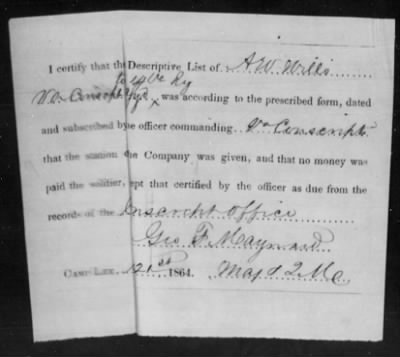 I certify that th Descriptive List of A W Wills
Va Conscript, was according to the prescribed form, dated
and subscribed by e officer commanding Va Conscripts
that the station the Company was given, and that no money was
paid the soldier, ept that certified by the officer as due from the
records of the Conscript office
Geo F Maynard
CAMP LEE, 21st 1864. Maj & Q M